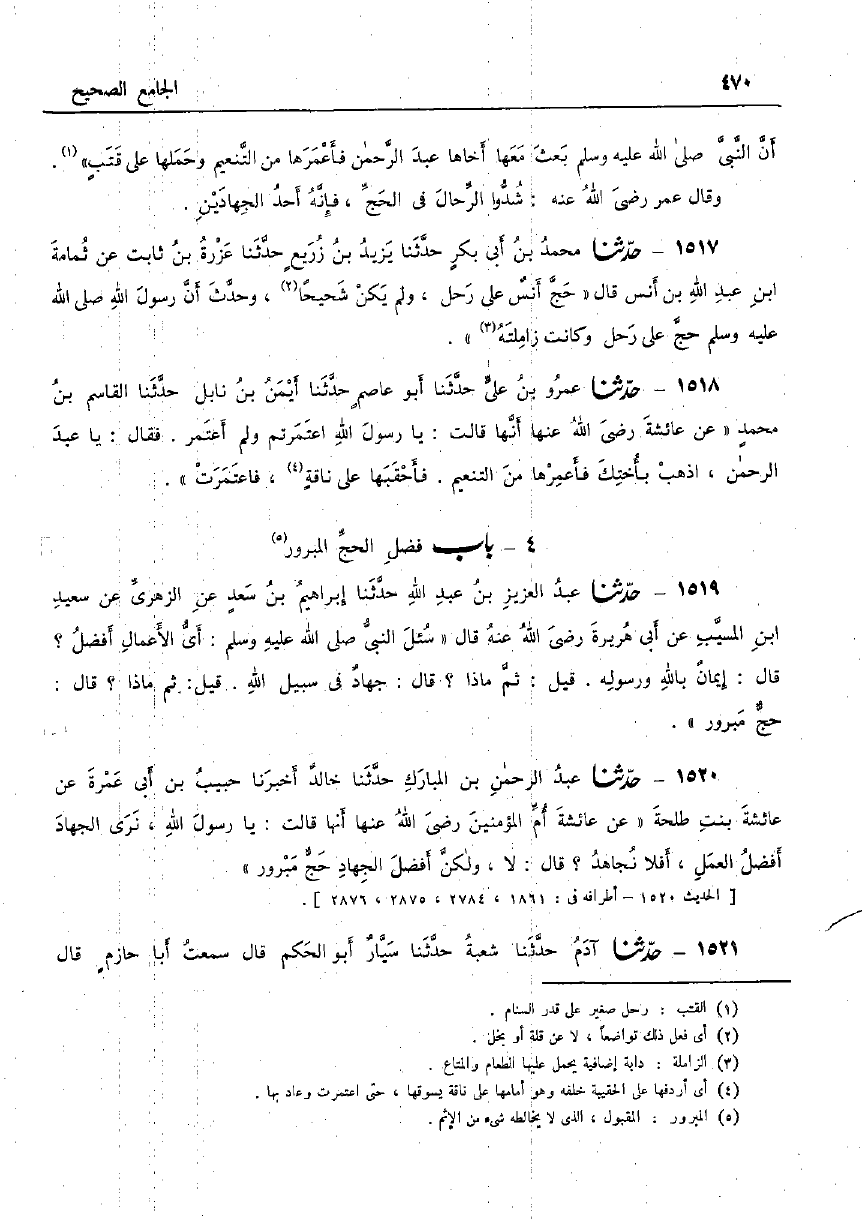 ٤٧٠
الجامع الصحيح
أَنَّ النَّبِىَّ صلىٰ الله عليه وسلم بَعثَ مَعَها أَخاها عبدَ الرَّحمٰن فأَعْمَرَها من التَّنعيم وحَمَلها على قَتَبٍ» (١) .
وقال عمر رضىَ اللهُ عنه : شُدُّوا الرِّحالَ فى الحَجِّ ، فإِنَّهُ أَحدُ الجِهادَيْنِ .
١٥١٧ – حدّثنا محمدُ بنُ أَبى بكرٍ حدَّثَنا يَزيدُ بنُ زُرَيعٍ حدَّثَنا عَزْرةُ بنُ ثابت عن ثُمامةَ
ابنِ عبدِ اللهِ بن أَنس قال « حَجَّ أَنسٌ على رَحل ، ولم يَكنْ شَحيحًا(٢) ، وحدَّثَ أَنَّ رسولَ اللهِ صلى الله
عليه وسلم حجَّ على رَحل وكانت زامِلتَهُ(٣) » .
١٥١٨ – حدّثنا عمرُو بنُ علىٍّ حدَّثَنا أَبو عاصمٍ حدَّثَنا أَيْمَنُ بنُ نابل حدَّثَنا القاسم بنُ
محمدٍ « عن عائشةَ رضىَ اللهُ عنها أَنَّها قالت : يا رسولَ اللهِ اعتمَرتم ولم أَعتَمر . فقال : يا عبدَ
الرحمٰن ، اذهبْ بأُختِكَ فأَعمِرْها منَ التنعيم . فأَحْقَبَها على ناقةٍ(٤) ، فاعتَمَرَتْ » .
٤ – باب فضلِ الحجِّ المبرور(٥)
١٥١٩ – حدّثنا عبدُ العزيزِ بنُ عبدِ اللهِ حدَّثَنا إبراهيمُ بنُ سَعدٍ عنِ الزهرىِّ عن سعيدِ
ابنِ المسيَّبِ عن أَبى هُريرةَ رضىَ اللهُ عنهُ قال « سُئلَ النبىُّ صلى الله عليهِ وسلم : أَىُّ الأَعمالِ أَفضلُ ؟
قال : إيمانٌ باللهِ ورسولِه . قيل : ثمَّ ماذا ؟ قال : جهادٌ فى سبيل اللهِ . قيل: ثم ماذا ؟ قال :
حجٌّ مَبرور » .
١٥٢٠ – حدّثنا عبدُ الرحمٰنِ بن المبارَكِ حدَّثَنا خالدٌ أَخبرَنا حبيبُ بن أَبى عَمْرةَ عن
عائشةَ بنتِ طلحةَ « عن عائشةَ أُمِّ المؤمنينَ رضىَ اللهُ عنها أنها قالت : يا رسولَ اللهِ ، نَرَى الجهادَ
أَفضلُ العمَلِ ، أَفلا نُجاهدُ ؟ قال : لا ، ولٰكنَّ أَفضلَ الجِهادِ حَجٌّ مَبْرور »
[ الحديث ١٥٢٠ – أطرافه فى : ١٨٦١ ، ٢٧٨٤ ، ٢٨٧٥ ، ٢٨٧٦ ] .
١٥٢١ – حدّثنا آدَمُ حدَّثَنا شعبةُ حدَّثَنا سَيَّارٌ أَبو الحَكم قال سمعتُ أَبا حازمٍ قال
(١) القتب : رحل صغير على قدر السنام .
(٢) أى فعل ذلك تواضعاً ، لا عن قلة أو بخل .
(٣) الزاملة : دابة إضافية يحمل عليها الطعام والمتاع .
(٤) أى أردفها على الحقيبة خلفه وهو أمامها على ناقة يسوقها ، حتى اعتمرت وعاد بها .
(٥) المبرور : المقبول ، الذى لا يخالطه شىء من الإثم .